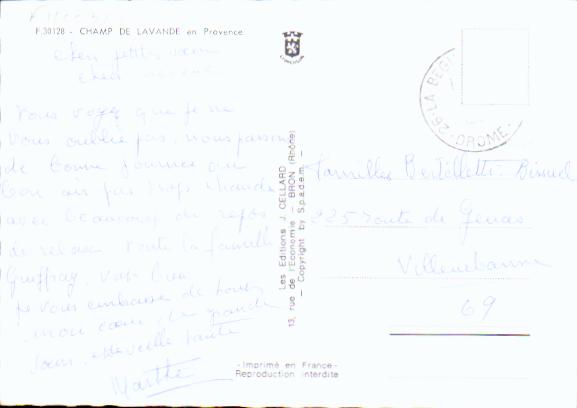 F.30128 - CHAMP DE LAVANDE en Provence
chère petite sœur
cher
Vous voyez que je ne
vous oublie pas, nous passons
de bonne journée au
bon air pas trop chaude
avec beaucoup de repos
de relaxe toute la famille
Gueffray, vous bien
je vous embrasse de tout
mon cœur, la grande
sœur, vieille tante
Marthe
Les Editions J. CELLARD
13, rue de l'Economie - BRON (Rhône)
— Copyright by S.p.a.d.e.m. —
-Imprimé en France-
Reproduction interdite
26-LA BEGU
-DROME-
Familles Bertelletti-
225 route de Genas
Villeurbanne
69